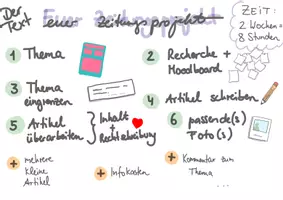 Der Text
euer Zeitungsprojekt
ZEIT:
2 Wochen =
8 Stunden
1 Thema
2 Recherche +
Moodboard
3 Thema
eingrenzen
4 Artikel schreiben
5 Artikel
überarbeiten
Inhalt
+
Rechtschreibung
6 passende(s)
Foto(s)
+ mehrere
kleine
Artikel
+ Infokasten
+ Kommentar zum
Thema
...